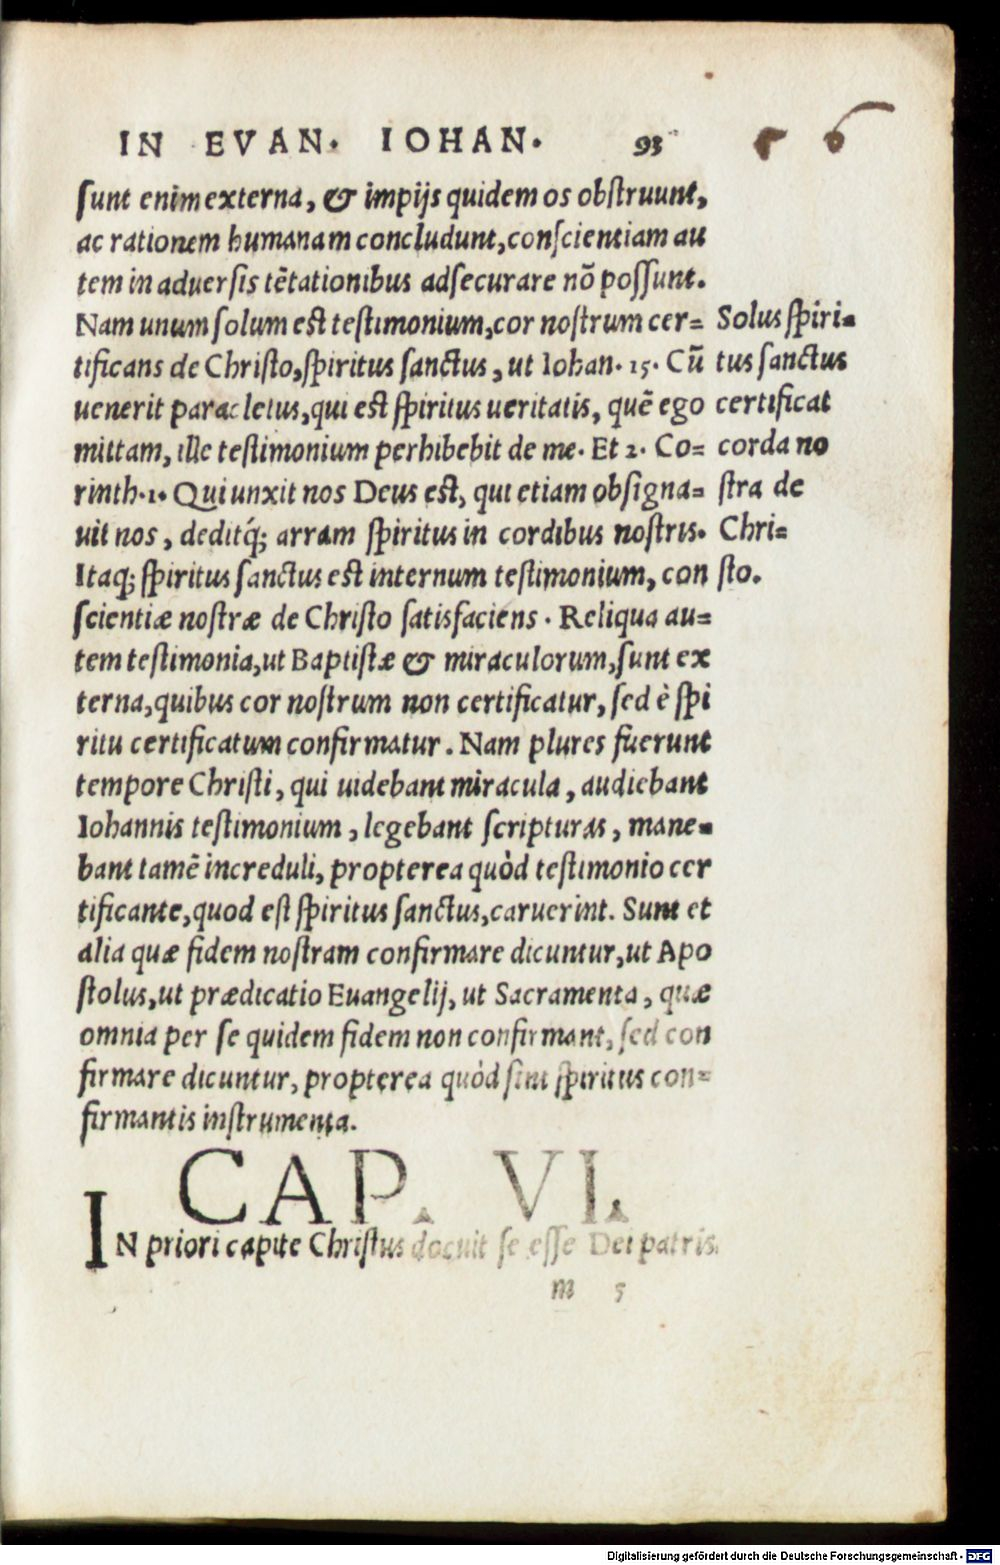 IN EVAN. IOHAN. 93
sunt enim externa, & impijs quidem os obstruunt,
ac rationem humanam concludunt, conscientiam au
tem in aduersis tētationibus adsecurare nō possunt.
Nam unum solum est testimonium, cor nostrum cer=
tificans de Christo, spiritus sanctus, ut Iohan. 15. Cū
uenerit paracletus, qui est spiritus ueritatis, quē ego
mittam, ille testimonium perhibebit de me. Et 2. Co=
rinth. 1. Qui unxit nos Deus est, qui etiam obsigna=
uit nos, deditq́; arram spiritus in cordibus nostris.
Itaq; spiritus sanctus est internum testimonium, con
scientiæ nostræ de Christo satisfaciens. Reliqua au=
tem testimonia, ut Baptistæ & miraculorum, sunt ex
terna, quibus cor nostrum non certificatur, sed è spi
ritu certificatum confirmatur. Nam plures fuerunt
tempore Christi, qui uidebant miracula, audiebant
Iohannis testimonium, legebant scripturas, mane=
bant tamē increduli, propterea quòd testimonio cer
tificante, quod est spiritus sanctus, caruerint. Sunt et
alia quæ fidem nostram confirmare dicuntur, ut Apo
stolus, ut prædicatio Euangelij, ut Sacramenta, quæ
omnia per se quidem fidem non confirmant, sed con
firmare dicuntur, propterea quòd sint spiritus con=
firmantis instrumenta.
Solus spiri=
tus sanctus
certificat
corda no
stra de
Chri=
sto.
CAP. VI.
IN priori capite Christus docuit se esse Dei patris.
m 5
Digitalisierung gefördert durch die Deutsche Forschungsgemeinschaft - DFG